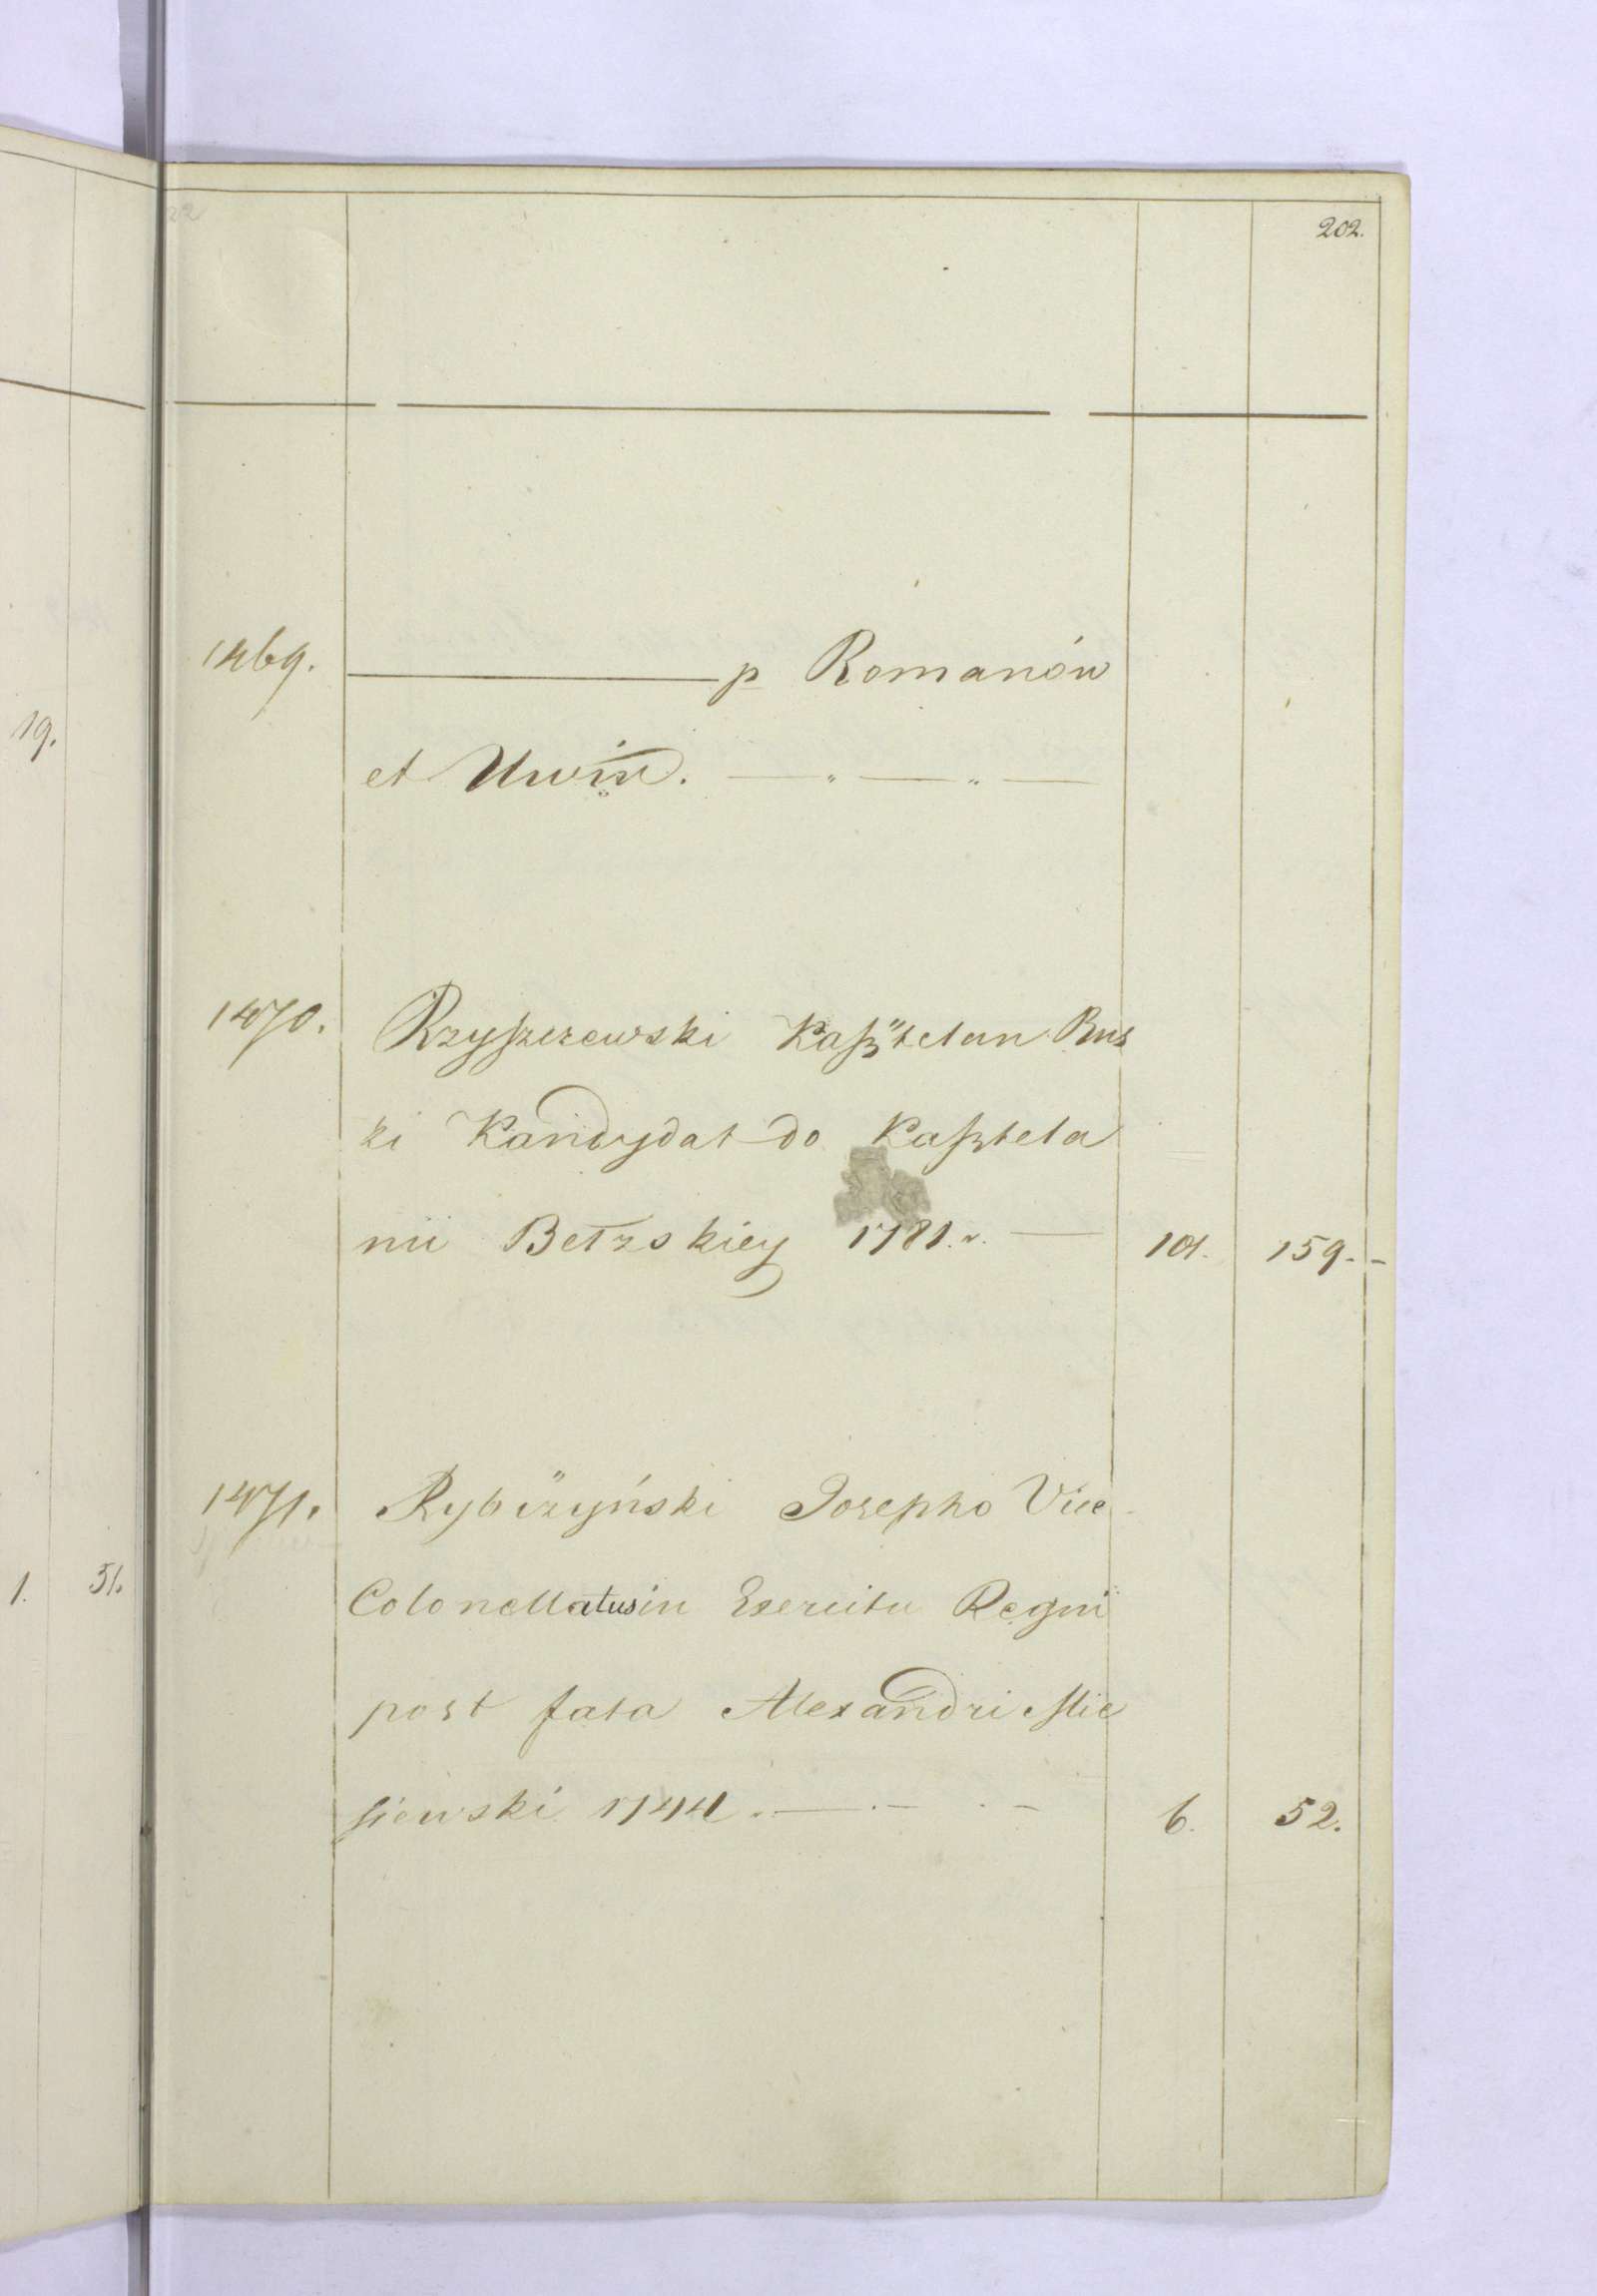 202.
1469. ——— p Romanów
et Uwin. — „ — „ —
1470. Rzyszczewski Kasztelan Rus
ki Kandydat do Kasztela
nii Bełzskiey 1781. r. — 101. 159. -
1471. Rybczyński Josepho Vice
Colonellatus in Exercitu Regni
post fata Alexandri Mie
siewski 1744. — . — . — 6. 52.
19.
1. 51.